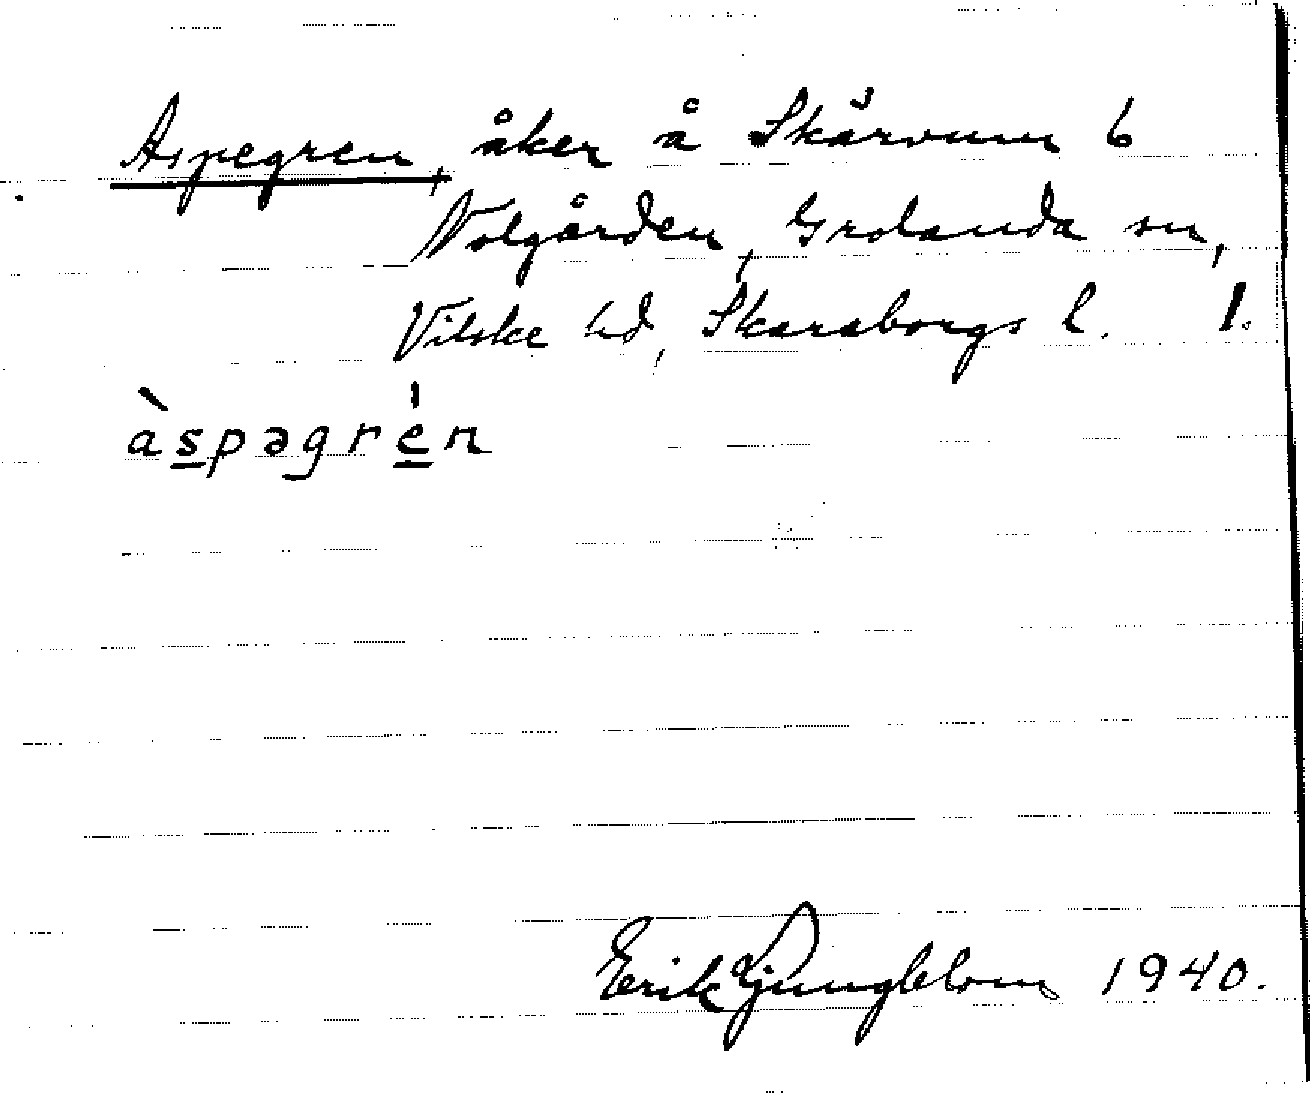 Aspegren, åker å Skärvum 6
Nolgården, Grolanda sn,
Vilske hd, Skaraborgs l. 1.
àspəgrén
Erik Ljungblom 1940.